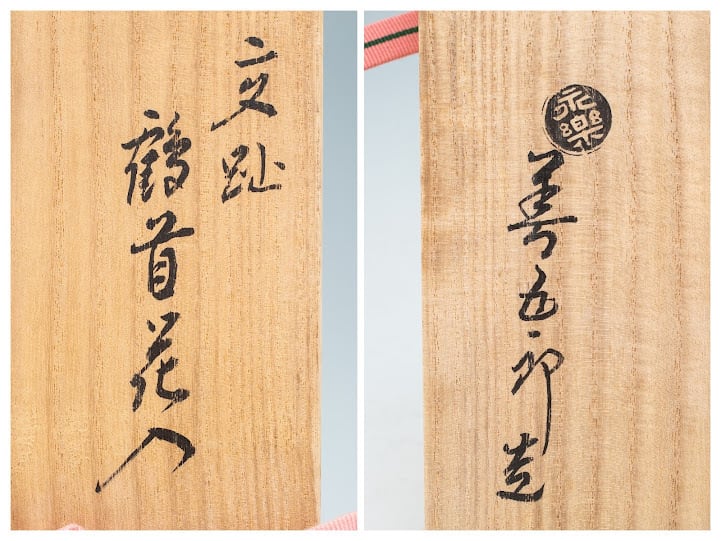 交趾
鶴首花入
永樂
善五郎造